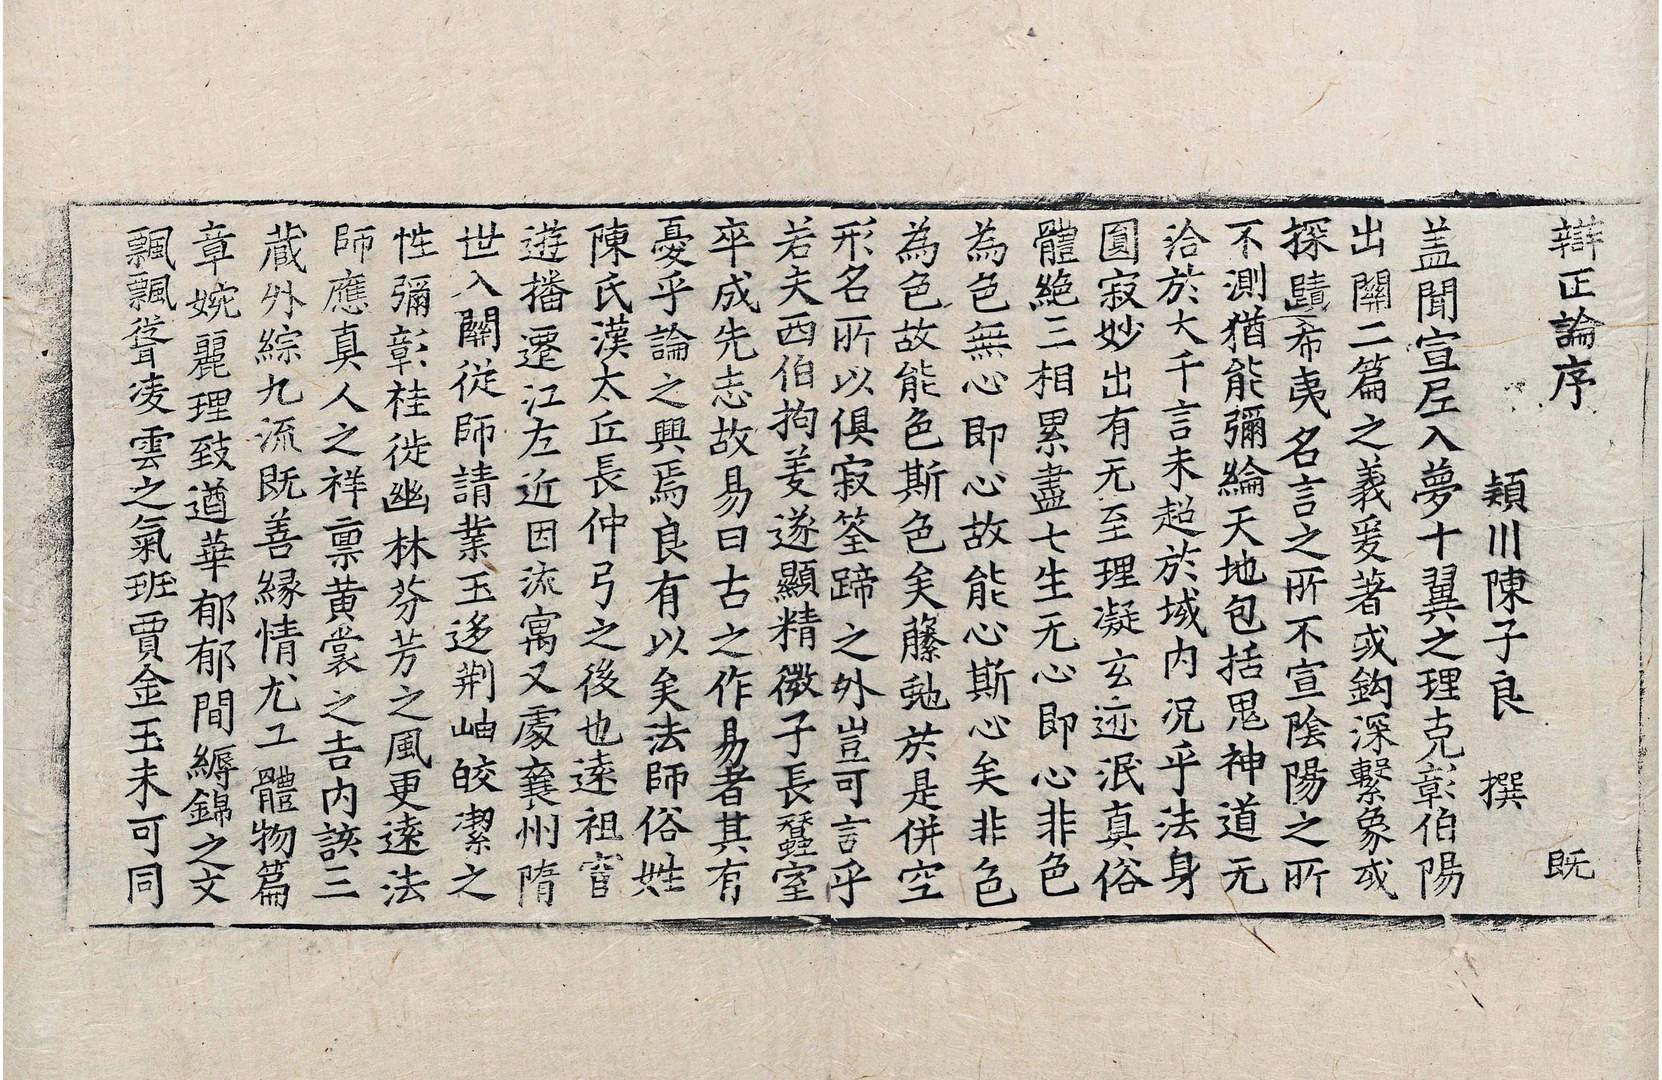 辯正論序 既
穎川陳子良 撰
盖聞宣尼入夢十翼之理克彰伯陽
出關二篇之義爰著或鈎深繫象或
探賾希夷名言之所不宣陰陽之所
不測猶能彌綸天地包括鬼神道无
洽於大千言未超於域内况乎法身
圓寂妙出有无至理凝玄迹泯真俗
體絶三相累盡七生无心即心非色
為色無心即心故能心斯心矣非色
為色故能色斯色矣藤虵於是併空
形名所以俱寂筌蹄之外豈可言乎
若夫西伯拘羑遂顯精微子長蠶室
卒成先志故易曰古之作易者其有
憂乎論之興焉良有以矣法師俗姓
陳氏漢太丘長仲弓之後也遠祖宦
遊播遷江左近因流寓又處襄州隋
世入關從師請業玉迻荆岫皎潔之
性彌彰桂徙幽林芬芳之風更遠法
師應真人之祥禀黄裳之吉内該三
蔵外綜九流既善縁情尤工體物篇
章婉麗理致遒華郁郁間縟錦之文
飄飄聳凌雲之氣班賈金玉未可同